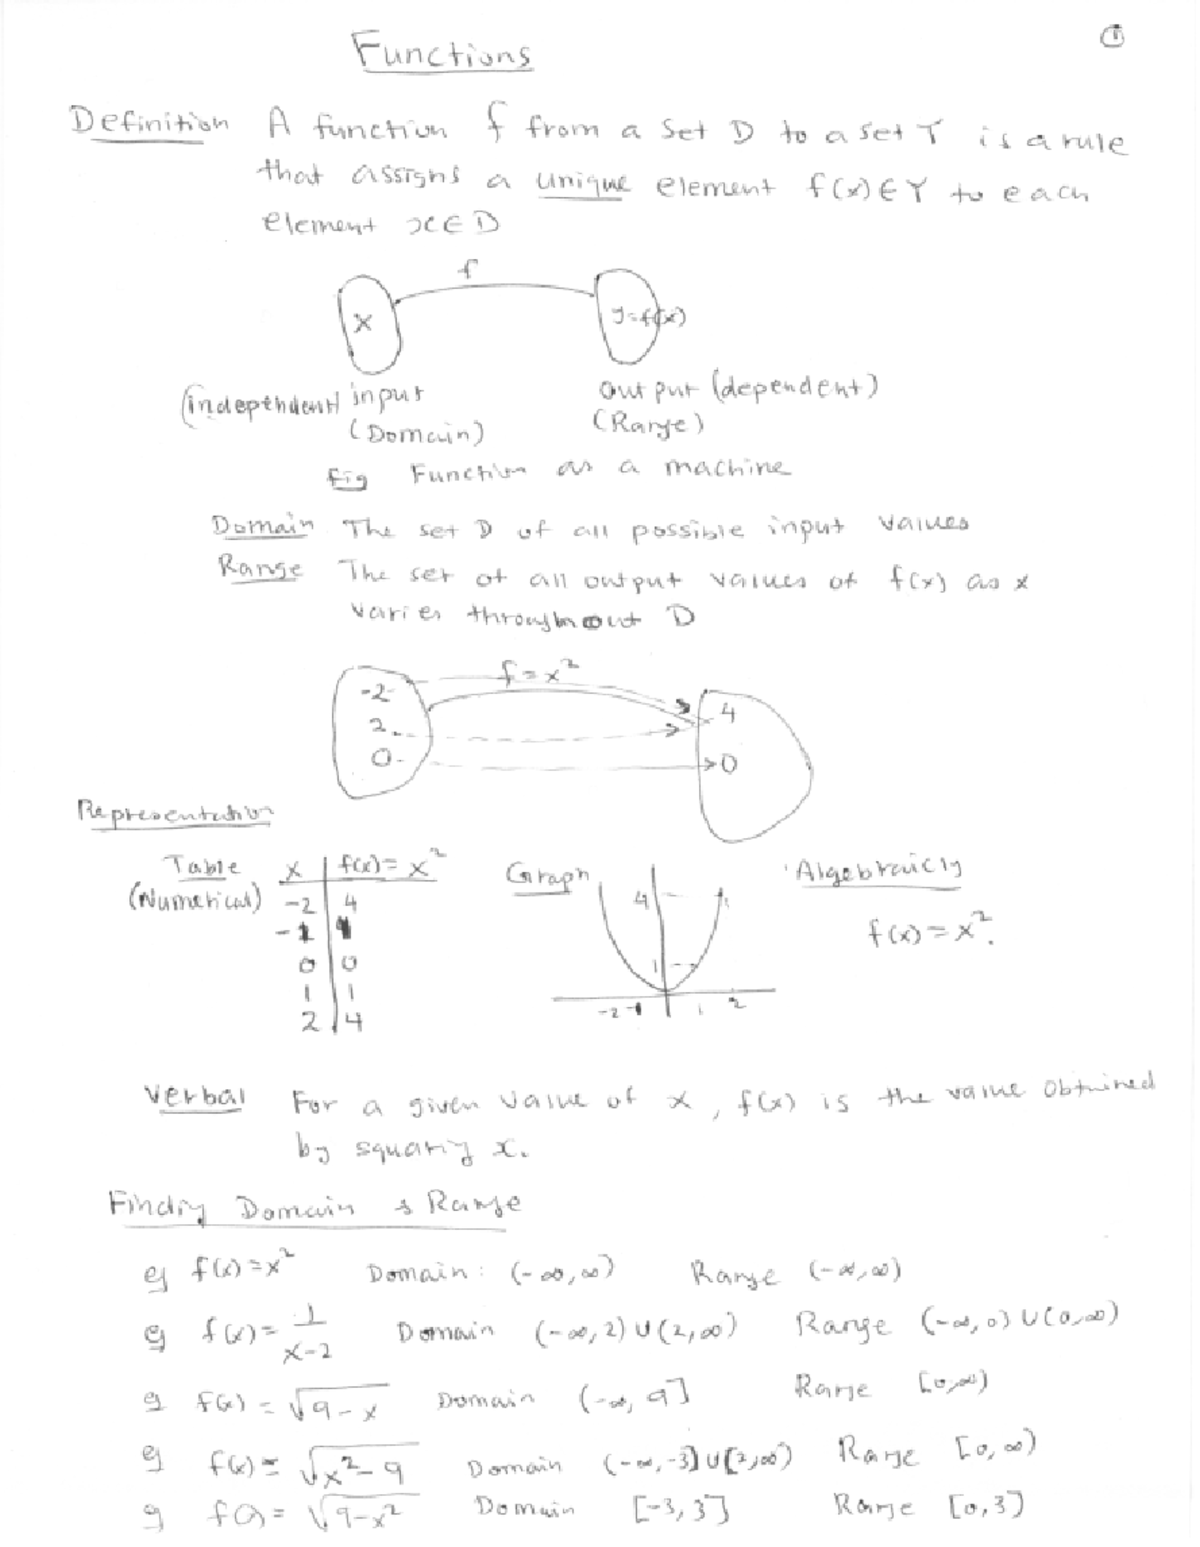 ①
Functions
Definition A function f from a set D to a set Y is a rule
that assigns a unique element f(x) ∈ Y to each
element x ∈ D
f
x
y=f(x)
(independent) input
output (dependent)
(Domain)
(Range)
Fig Function as a machine
Domain The set D of all possible input values
Range The set of all output values of f(x) as x
varies throughout D
f = x²
-2
2
0
4
0
Representation
Table
(Numerical)
x | f(x) = x²
-2 | 4
-1 | 1
0 | 0
1 | 1
2 | 4
Graph
4
1
-2 -1 1 2
Algebraicly
f(x) = x².
Verbal For a given value of x, f(x) is the value obtained
by squaring x.
Finding Domain & Range
eg f(x) = x² Domain: (-∞, ∞) Range (-∞, ∞)
eg f(x) = 1/(x-2) Domain (-∞, 2) ∪ (2, ∞) Range (-∞, 0) ∪ (0, ∞)
eg f(x) = √(9-x) Domain (-∞, 9] Range [0, ∞)
eg f(x) = √(x²-9) Domain (-∞, -3] ∪ [3, ∞) Range [0, ∞)
eg f(x) = √(9-x²) Domain [-3, 3] Range [0, 3]